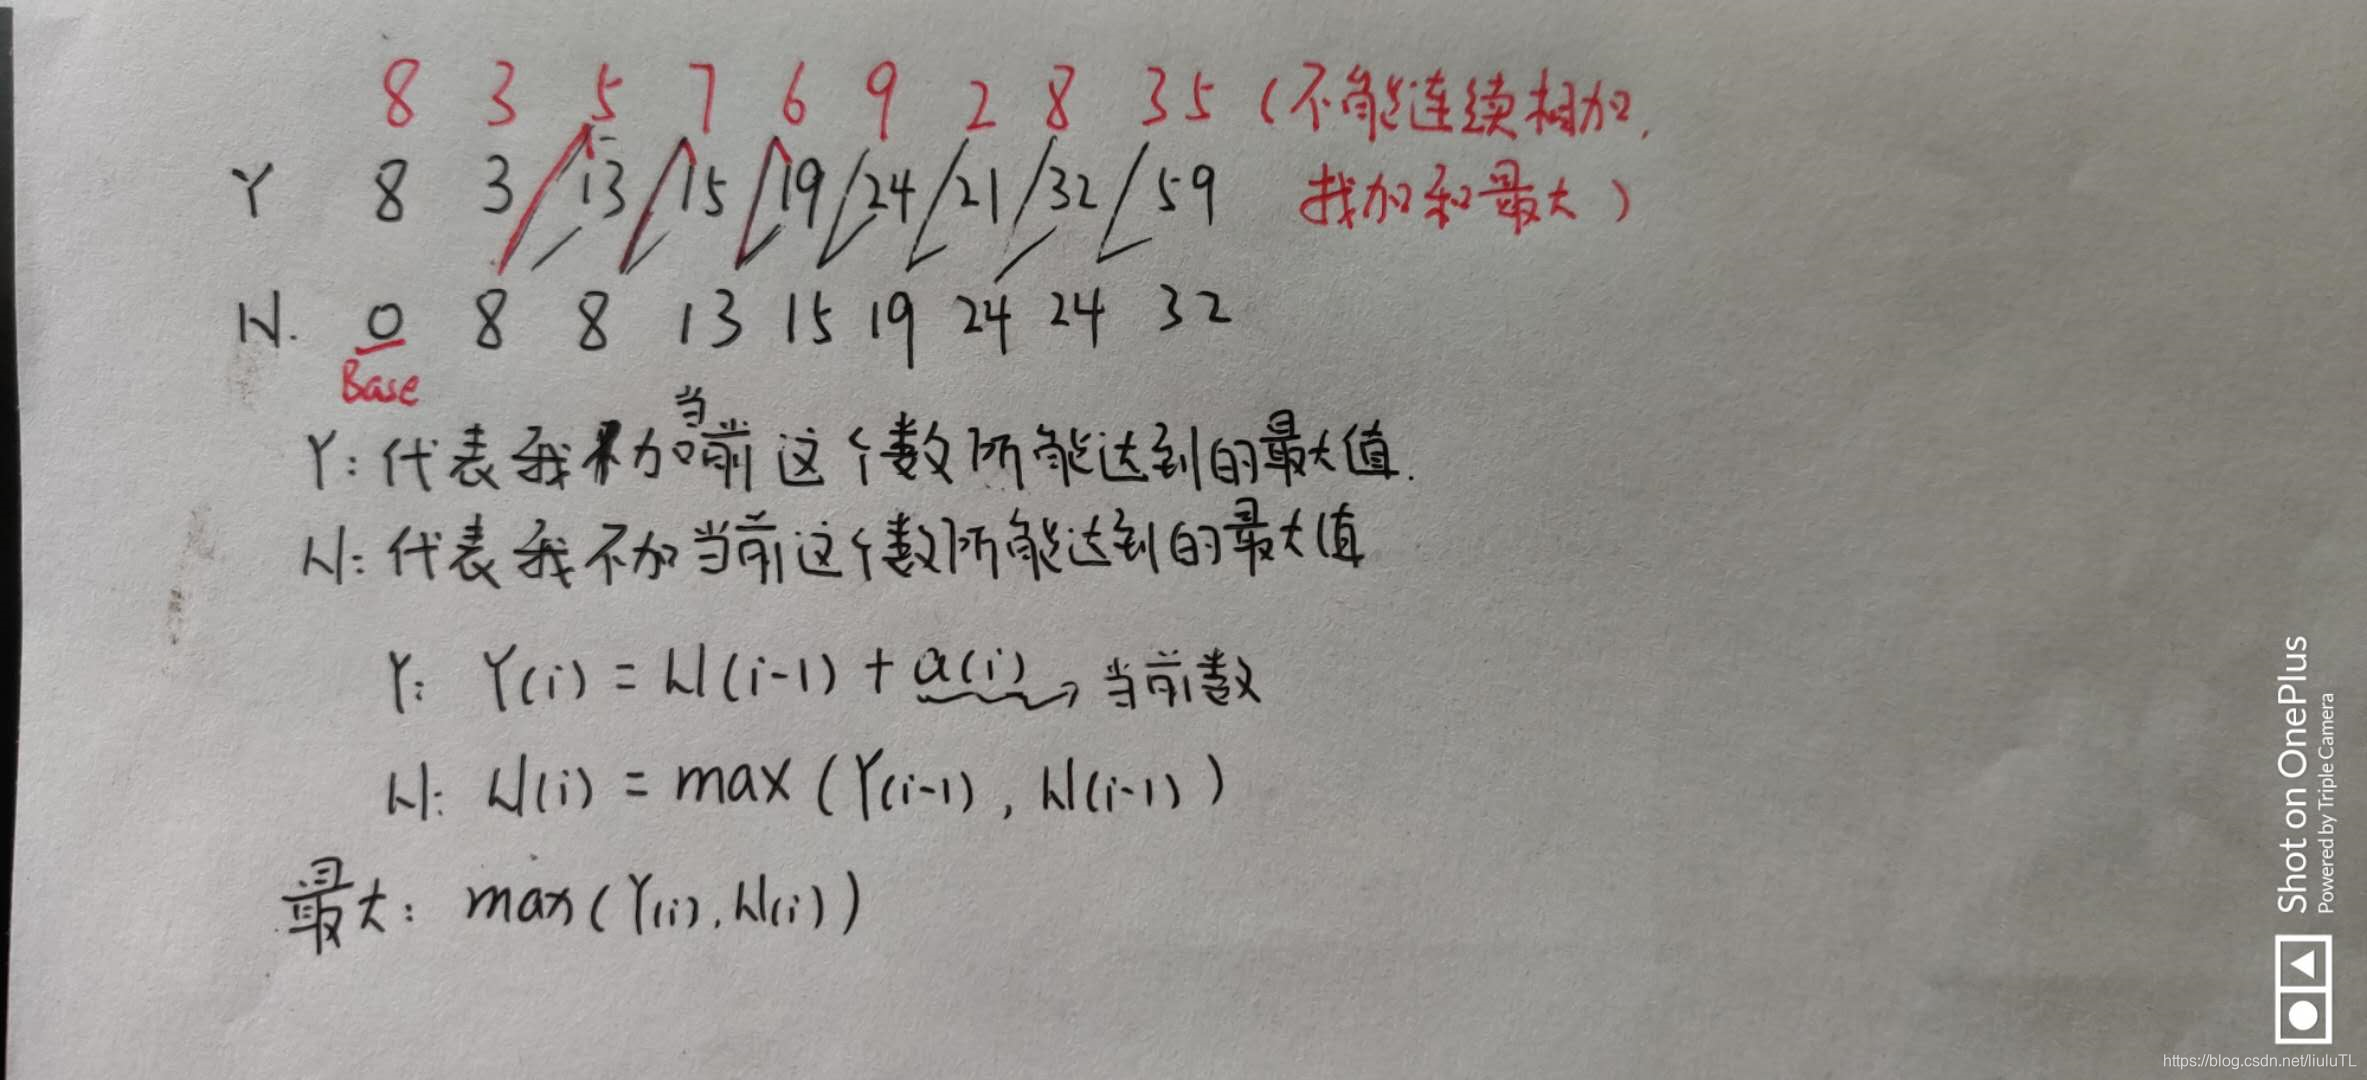 8 3 5 7 6 9 2 8 35 (不能连续相加,
Y 8 3 13 15 19 24 21 32 59 找加和最大)
N. 0 8 8 13 15 19 24 24 32
Base
Y: 代表我加当前这个数所能达到的最大值.
N: 代表我不加当前这个数所能达到的最大值
Y: Y(i) = N(i-1) + a(i) → 当前数
N: N(i) = max (Y(i-1), N(i-1))
最大: max(Y(i), N(i))
Shot on OnePlus
Powered by Triple Camera
https://blog.csdn.net/liuluTL